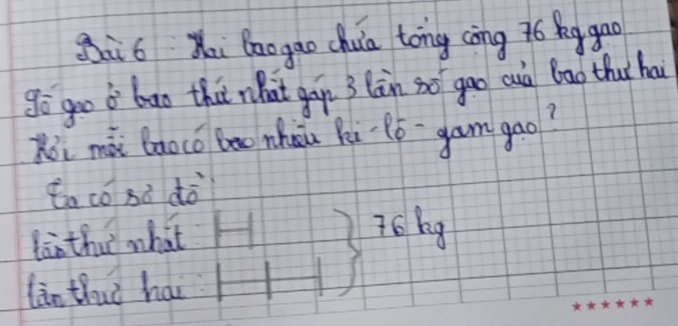 Bài 6: Hai bao gạo chứa tổng cộng 76 kg gạo.
Số gạo ở bao thứ nhất gấp 3 lần số gạo của bao thứ hai
Hỏi mỗi bao có bao nhiêu ki-lô-gam gạo?
Ta có sơ đồ
lần thứ nhất: 76 kg
lần thứ hai:
******